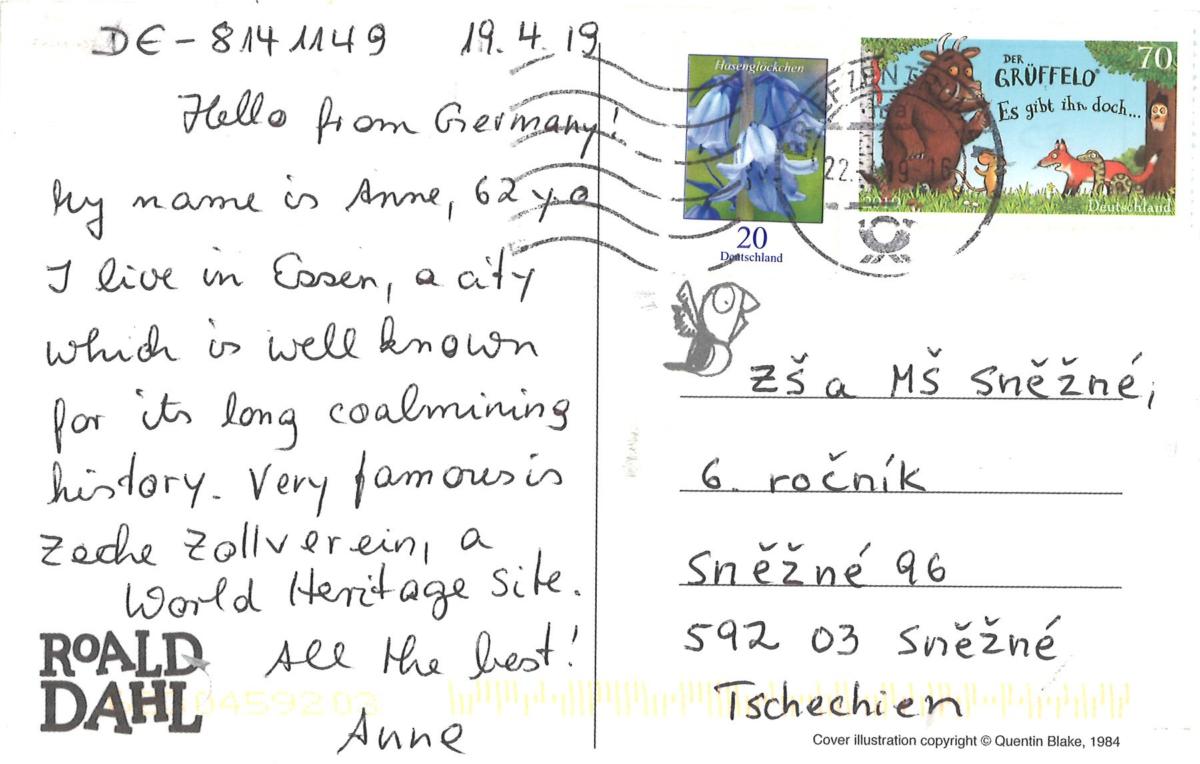 DE-8141149 19.4.19
Hello from Germany!
My name is Anne, 62 yo
I live in Essen, a city
which is well known
for its long coalmining
history. Very famous is
Zeche Zollverein, a
World Heritage Site.
All the best!
Anne
ROALD
DAHL
Hasenglöckchen
20
Deutschland
DER
GRÜFFELO
Es gibt ihn doch...
70
Deutschland
2019
ZŠ a MŠ Sněžné,
6. ročník
Sněžné 96
592 03 Sněžné
Tschechien
Cover illustration copyright © Quentin Blake, 1984